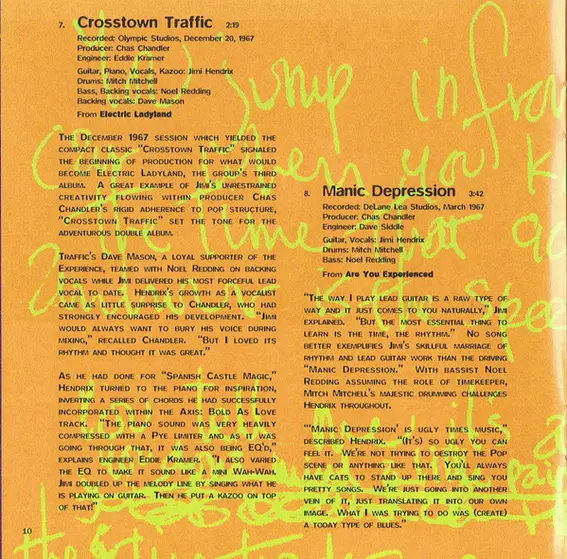 7. Crosstown Traffic 2:19
Recorded: Olympic Studios, December 20, 1967
Producer: Chas Chandler
Engineer: Eddie Kramer
Guitar, Piano, Vocals, Kazoo: Jimi Hendrix
Drums: Mitch Mitchell
Bass, Backing vocals: Noel Redding
Backing vocals: Dave Mason
From Electric Ladyland
The December 1967 session which yielded the
compact classic "Crosstown Traffic" signaled
the beginning of production for what would
become Electric Ladyland, the group's third
album. A great example of Jimi's unrestrained
creativity flowing within producer Chas
Chandler's rigid adherence to pop structure,
"Crosstown Traffic" set the tone for the
adventurous double album.
Traffic's Dave Mason, a loyal supporter of the
Experience, teamed with Noel Redding on backing
vocals while Jimi delivered his most forceful lead
vocal to date. Hendrix's growth as a vocalist
came as little surprise to Chandler, who had
strongly encouraged his development. "Jimi
would always want to bury his voice during
mixing," recalled Chandler. "But I loved its
rhythm and thought it was great."
As he had done for "Spanish Castle Magic,"
Hendrix turned to the piano for inspiration,
inverting a series of chords he had successfully
incorporated within the Axis: Bold As Love
track. "The piano sound was very heavily
compressed with a Pye limiter and as it was
going through that, it was also being EQ'd,"
explains engineer Eddie Kramer. "I also varied
the EQ to make it sound like a mini Wah-Wah.
Jimi doubled up the melody line by singing what he
is playing on guitar. Then he put a kazoo on top
of that!"
10
8. Manic Depression 3:42
Recorded: DeLane Lea Studios, March 1967
Producer: Chas Chandler
Engineer: Dave Siddle
Guitar, Vocals: Jimi Hendrix
Drums: Mitch Mitchell
Bass: Noel Redding
From Are You Experienced
"The way I play lead guitar is a raw type of
way and it just comes to you naturally," Jimi
explained. "But the most essential thing to
learn is the time, the rhythm." No song
better exemplifies Jimi's skillful marriage of
rhythm and lead guitar work than the driving
"Manic Depression." With bassist Noel
Redding assuming the role of timekeeper,
Mitch Mitchell's majestic drumming challenges
Hendrix throughout.
"'Manic Depression' is ugly times music,"
described Hendrix. "(It's) so ugly you can
feel it. We're not trying to destroy the Pop
scene or anything like that. You'll always
have cats to stand up there and sing you
pretty songs. We're just going into another
vein of it, just translating it into our own
image. What I was trying to do was (create)
a today type of blues."
jump in fron